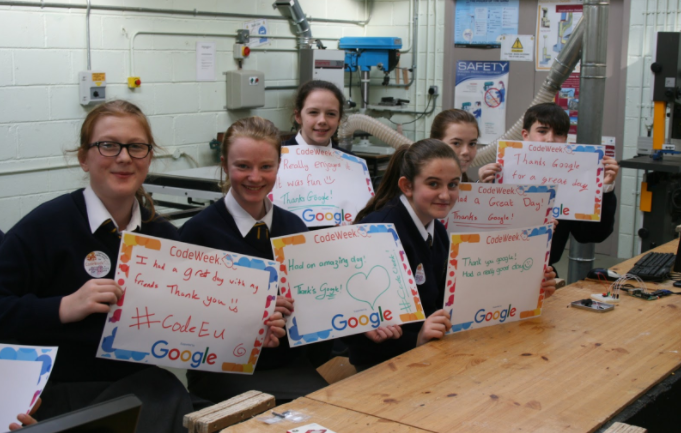 SAFETY
CodeWeek
I had a great day with my
friends Thank you
#CodeEU
Google
CodeWeek
Really engaging
it was fun
Thanks Google!
Google
CodeWeek
Had an amazing day!
Thanks Google!
Google
CodeWeek
Had a Great Day!
Thanks Google!
CodeWeek
Thank you google!
Had a really great day
Google
CodeWeek
Thanks Google
for a great day